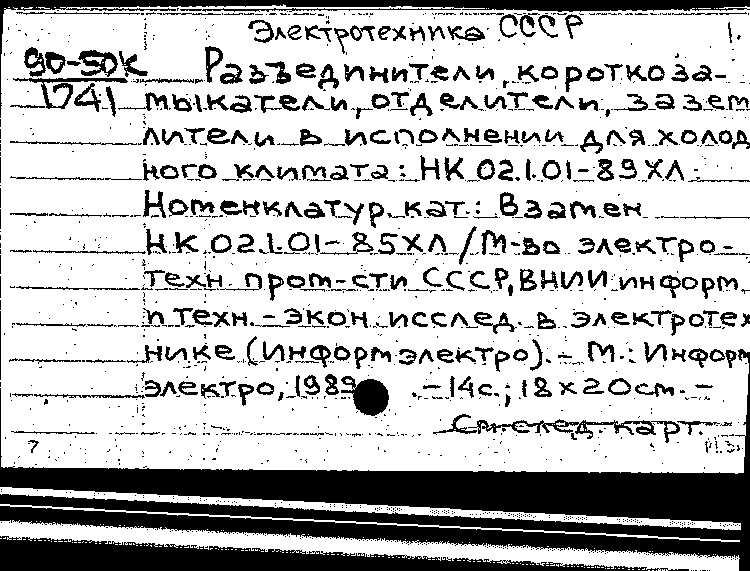 Электротехника СССР 1.
90-50к
1741
Разъединители, короткоза-
мыкатели, отделители, зазем
лители в исполнении для холод
ного климата: НК 02.1.01-89ХЛ:
Номенклатур. кат.: Взамен
НК 02.1.01-85ХЛ / М-во электро-
техн пром-сти СССР, ВНИИ информ.
и техн.-экон. исслед. в электротех
нике (Информэлектро).- М.: Информ
электро, 1989 .-14с.; 18x20см.-
См. след. карт.
7